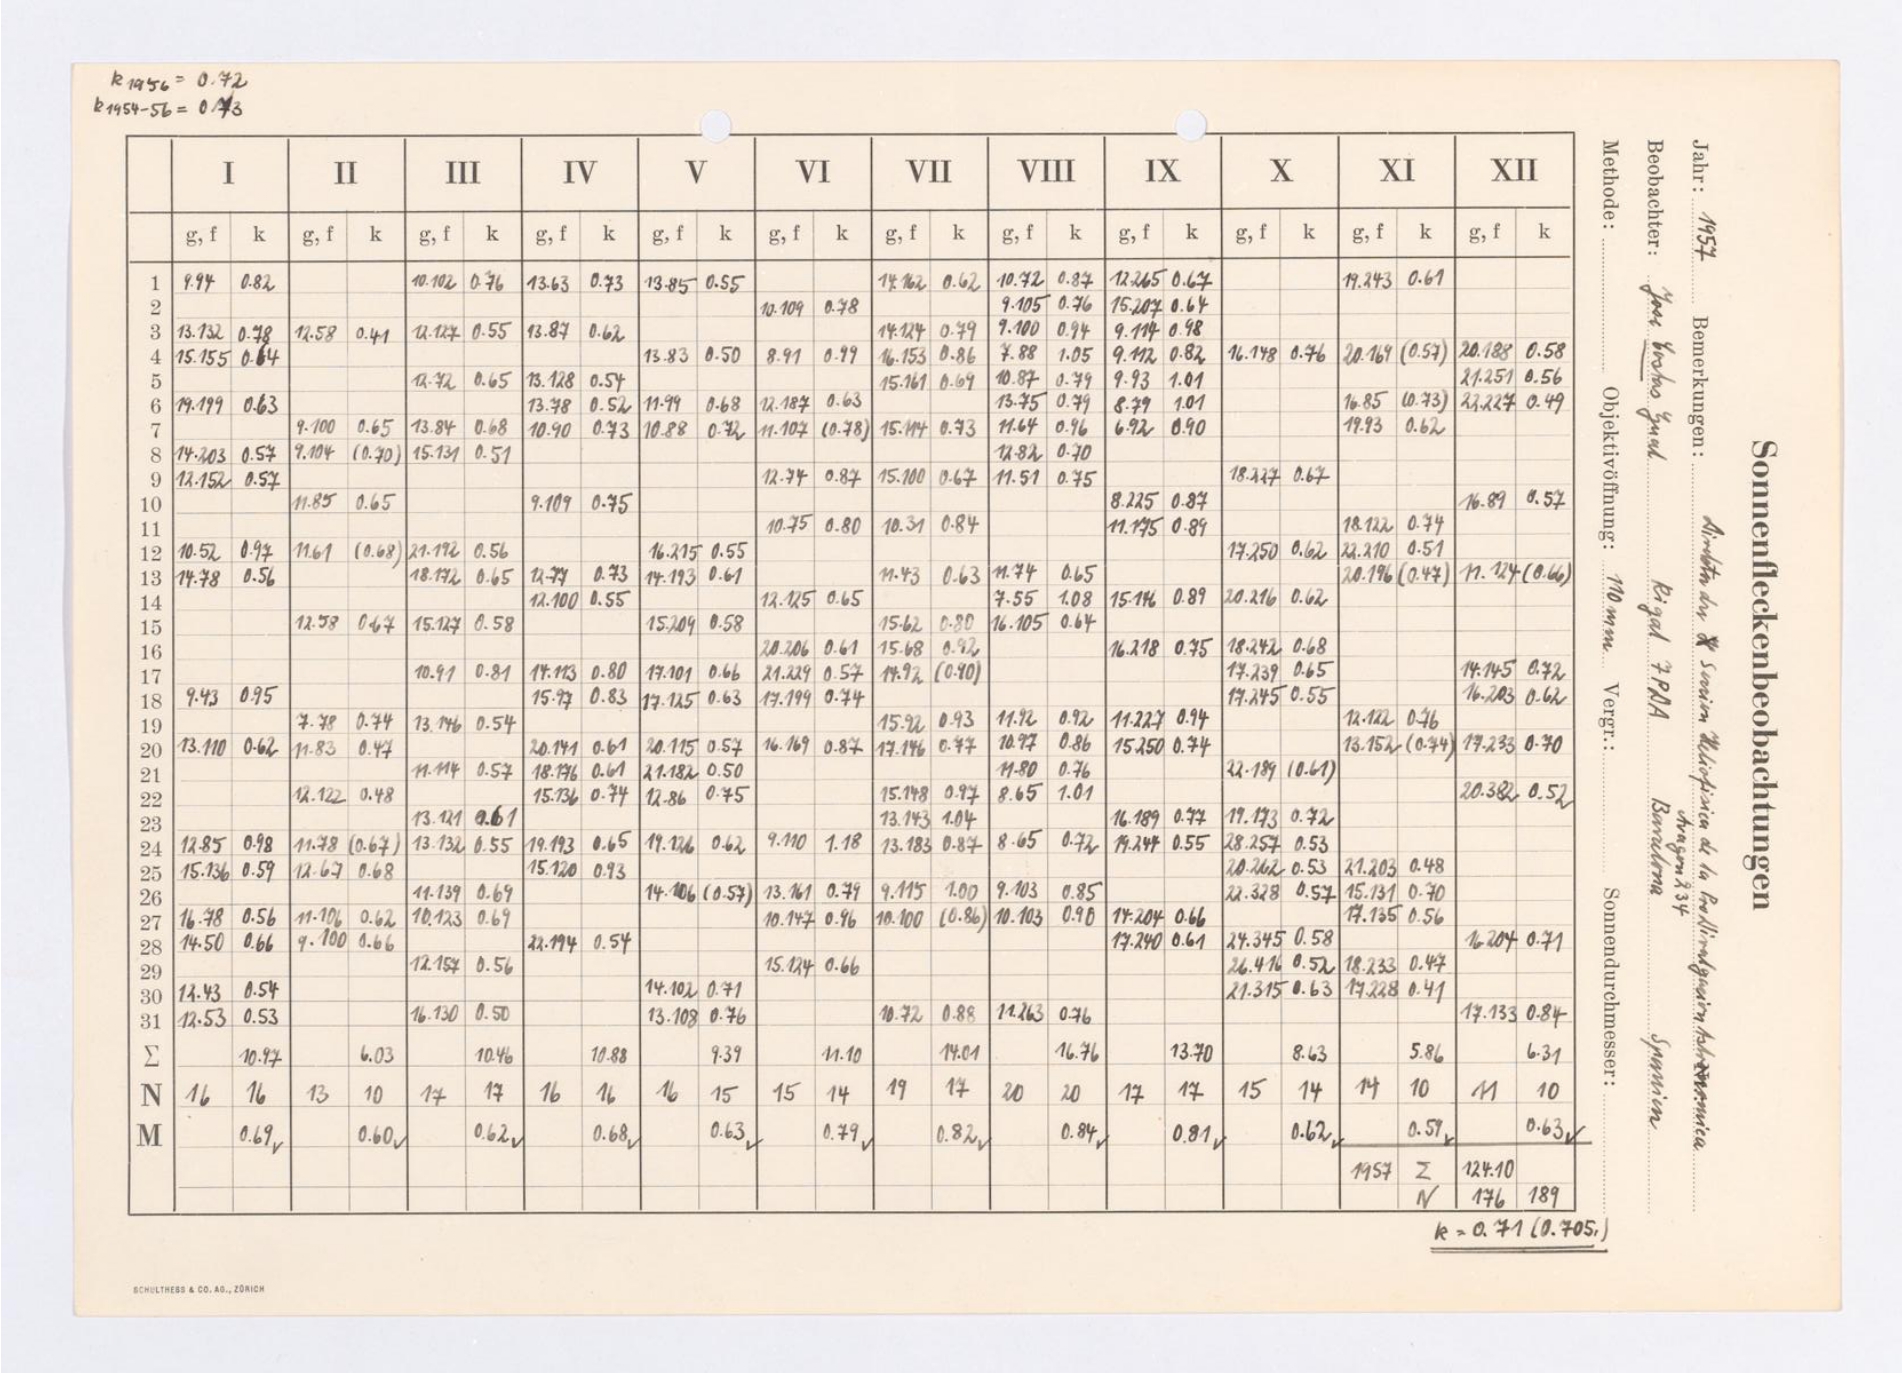 k 1956 = 0.72
k 1954-56 = 0.73
Sonnenfleckenbeobachtungen
Jahr: 1957 Bemerkungen: Seccion de la
Aragon 234
Beobachter: Jose Rigal 7 PDA Barcelona Spanien
Methode: Objektivöffnung: 110 mm Vergr.: Sonnendurchmesser:
I II III IV V VI VII VIII IX X XI XII
g, f k g, f k g, f k g, f k g, f k g, f k g, f k g, f k g, f k g, f k g, f k g, f k
1 9.94 0.82 10.102 0.76 13.63 0.73 13.85 0.55 14.162 0.62 10.72 0.87 12.265 0.67 19.243 0.61
2 10.109 0.78 9.105 0.76 15.207 0.64
3 13.132 0.78 12.58 0.41 12.127 0.55 13.87 0.62 14.124 0.79 9.100 0.94 9.114 0.98
4 15.155 0.64 13.83 0.50 8.91 0.99 16.153 0.86 7.88 1.05 9.112 0.82 16.148 0.76 20.169 (0.57) 20.188 0.58
5 12.72 0.65 13.128 0.54 15.161 0.69 10.87 0.79 9.93 1.01 21.251 0.56
6 19.199 0.63 13.78 0.52 11.99 0.68 12.187 0.63 13.75 0.79 8.79 1.01 16.85 (0.73) 22.227 0.49
7 9.100 0.65 13.84 0.68 10.90 0.73 10.88 0.72 11.107 (0.78) 15.114 0.73 11.64 0.96 6.92 0.90 19.93 0.62
8 14.203 0.57 9.104 (0.70) 15.131 0.51 12.82 0.70
9 12.152 0.57 12.74 0.87 15.100 0.67 11.51 0.75 18.227 0.67
10 11.85 0.65 9.109 0.75 8.225 0.87 16.89 0.57
11 10.75 0.80 10.31 0.84 11.175 0.89 18.122 0.74
12 10.52 0.97 11.61 (0.68) 21.192 0.56 16.215 0.55 17.250 0.62 22.210 0.51
13 14.78 0.56 18.172 0.65 12.77 0.73 14.193 0.61 11.43 0.63 11.74 0.65 20.196 (0.47) 11.124 (0.66)
14 12.100 0.55 12.125 0.65 7.55 1.08 15.146 0.89 20.216 0.62
15 12.58 0.67 15.127 0.58 15.209 0.58 15.62 0.80 16.105 0.64
16 20.206 0.61 15.68 0.92 16.218 0.75 18.242 0.68
17 10.91 0.81 14.113 0.80 17.101 0.66 21.229 0.57 14.92 (0.90) 17.239 0.65 14.145 0.72
18 9.43 0.95 15.97 0.83 17.125 0.63 17.199 0.74 17.245 0.55 16.203 0.62
19 7.78 0.74 13.146 0.54 15.92 0.93 11.92 0.92 11.227 0.94 12.122 0.76
20 13.110 0.62 11.83 0.47 20.141 0.61 20.115 0.57 16.169 0.87 17.146 0.77 10.97 0.86 15.250 0.74 13.152 (0.74) 17.233 0.70
21 11.114 0.57 18.176 0.61 21.182 0.50 11.80 0.76 22.189 (0.61)
22 12.122 0.48 15.136 0.74 12.86 0.75 15.148 0.97 8.65 1.01 20.382 0.52
23 13.121 0.61 13.143 1.04 16.189 0.77 19.173 0.72
24 12.85 0.98 11.78 (0.67) 13.132 0.55 19.193 0.65 19.126 0.62 9.110 1.18 13.183 0.87 8.65 0.72 19.244 0.55 28.257 0.53
25 15.136 0.59 12.67 0.68 15.120 0.93 20.262 0.53 21.203 0.48
26 11.139 0.69 14.106 (0.57) 13.161 0.79 9.115 1.00 9.103 0.85 22.328 0.57 15.131 0.70
27 16.78 0.56 11.106 0.62 10.123 0.69 10.147 0.96 10.100 (0.86) 10.103 0.90 14.204 0.66 17.135 0.56
28 14.50 0.66 9.100 0.66 22.194 0.54 17.240 0.61 24.345 0.58 16.204 0.71
29 12.157 0.56 15.124 0.66 26.416 0.52 18.233 0.47
30 12.43 0.54 14.102 0.71 21.315 0.63 17.228 0.41
31 12.53 0.53 16.130 0.50 13.108 0.76 10.72 0.88 11.263 0.76 17.133 0.84
Σ 10.97 6.03 10.46 10.88 9.39 11.10 14.01 16.76 13.70 8.63 5.86 6.31
N 16 16 13 10 17 17 16 16 16 15 15 14 19 17 20 20 17 17 15 14 14 10 11 10
M 0.69✓ 0.60✓ 0.62✓ 0.68✓ 0.63✓ 0.79✓ 0.82✓ 0.84✓ 0.81✓ 0.62✓ 0.59✓ 0.63✓
1957 Σ 124.10
N 176 189
k = 0.71 (0.705.)
SCHULTHESS & CO. AG., ZÜRICH